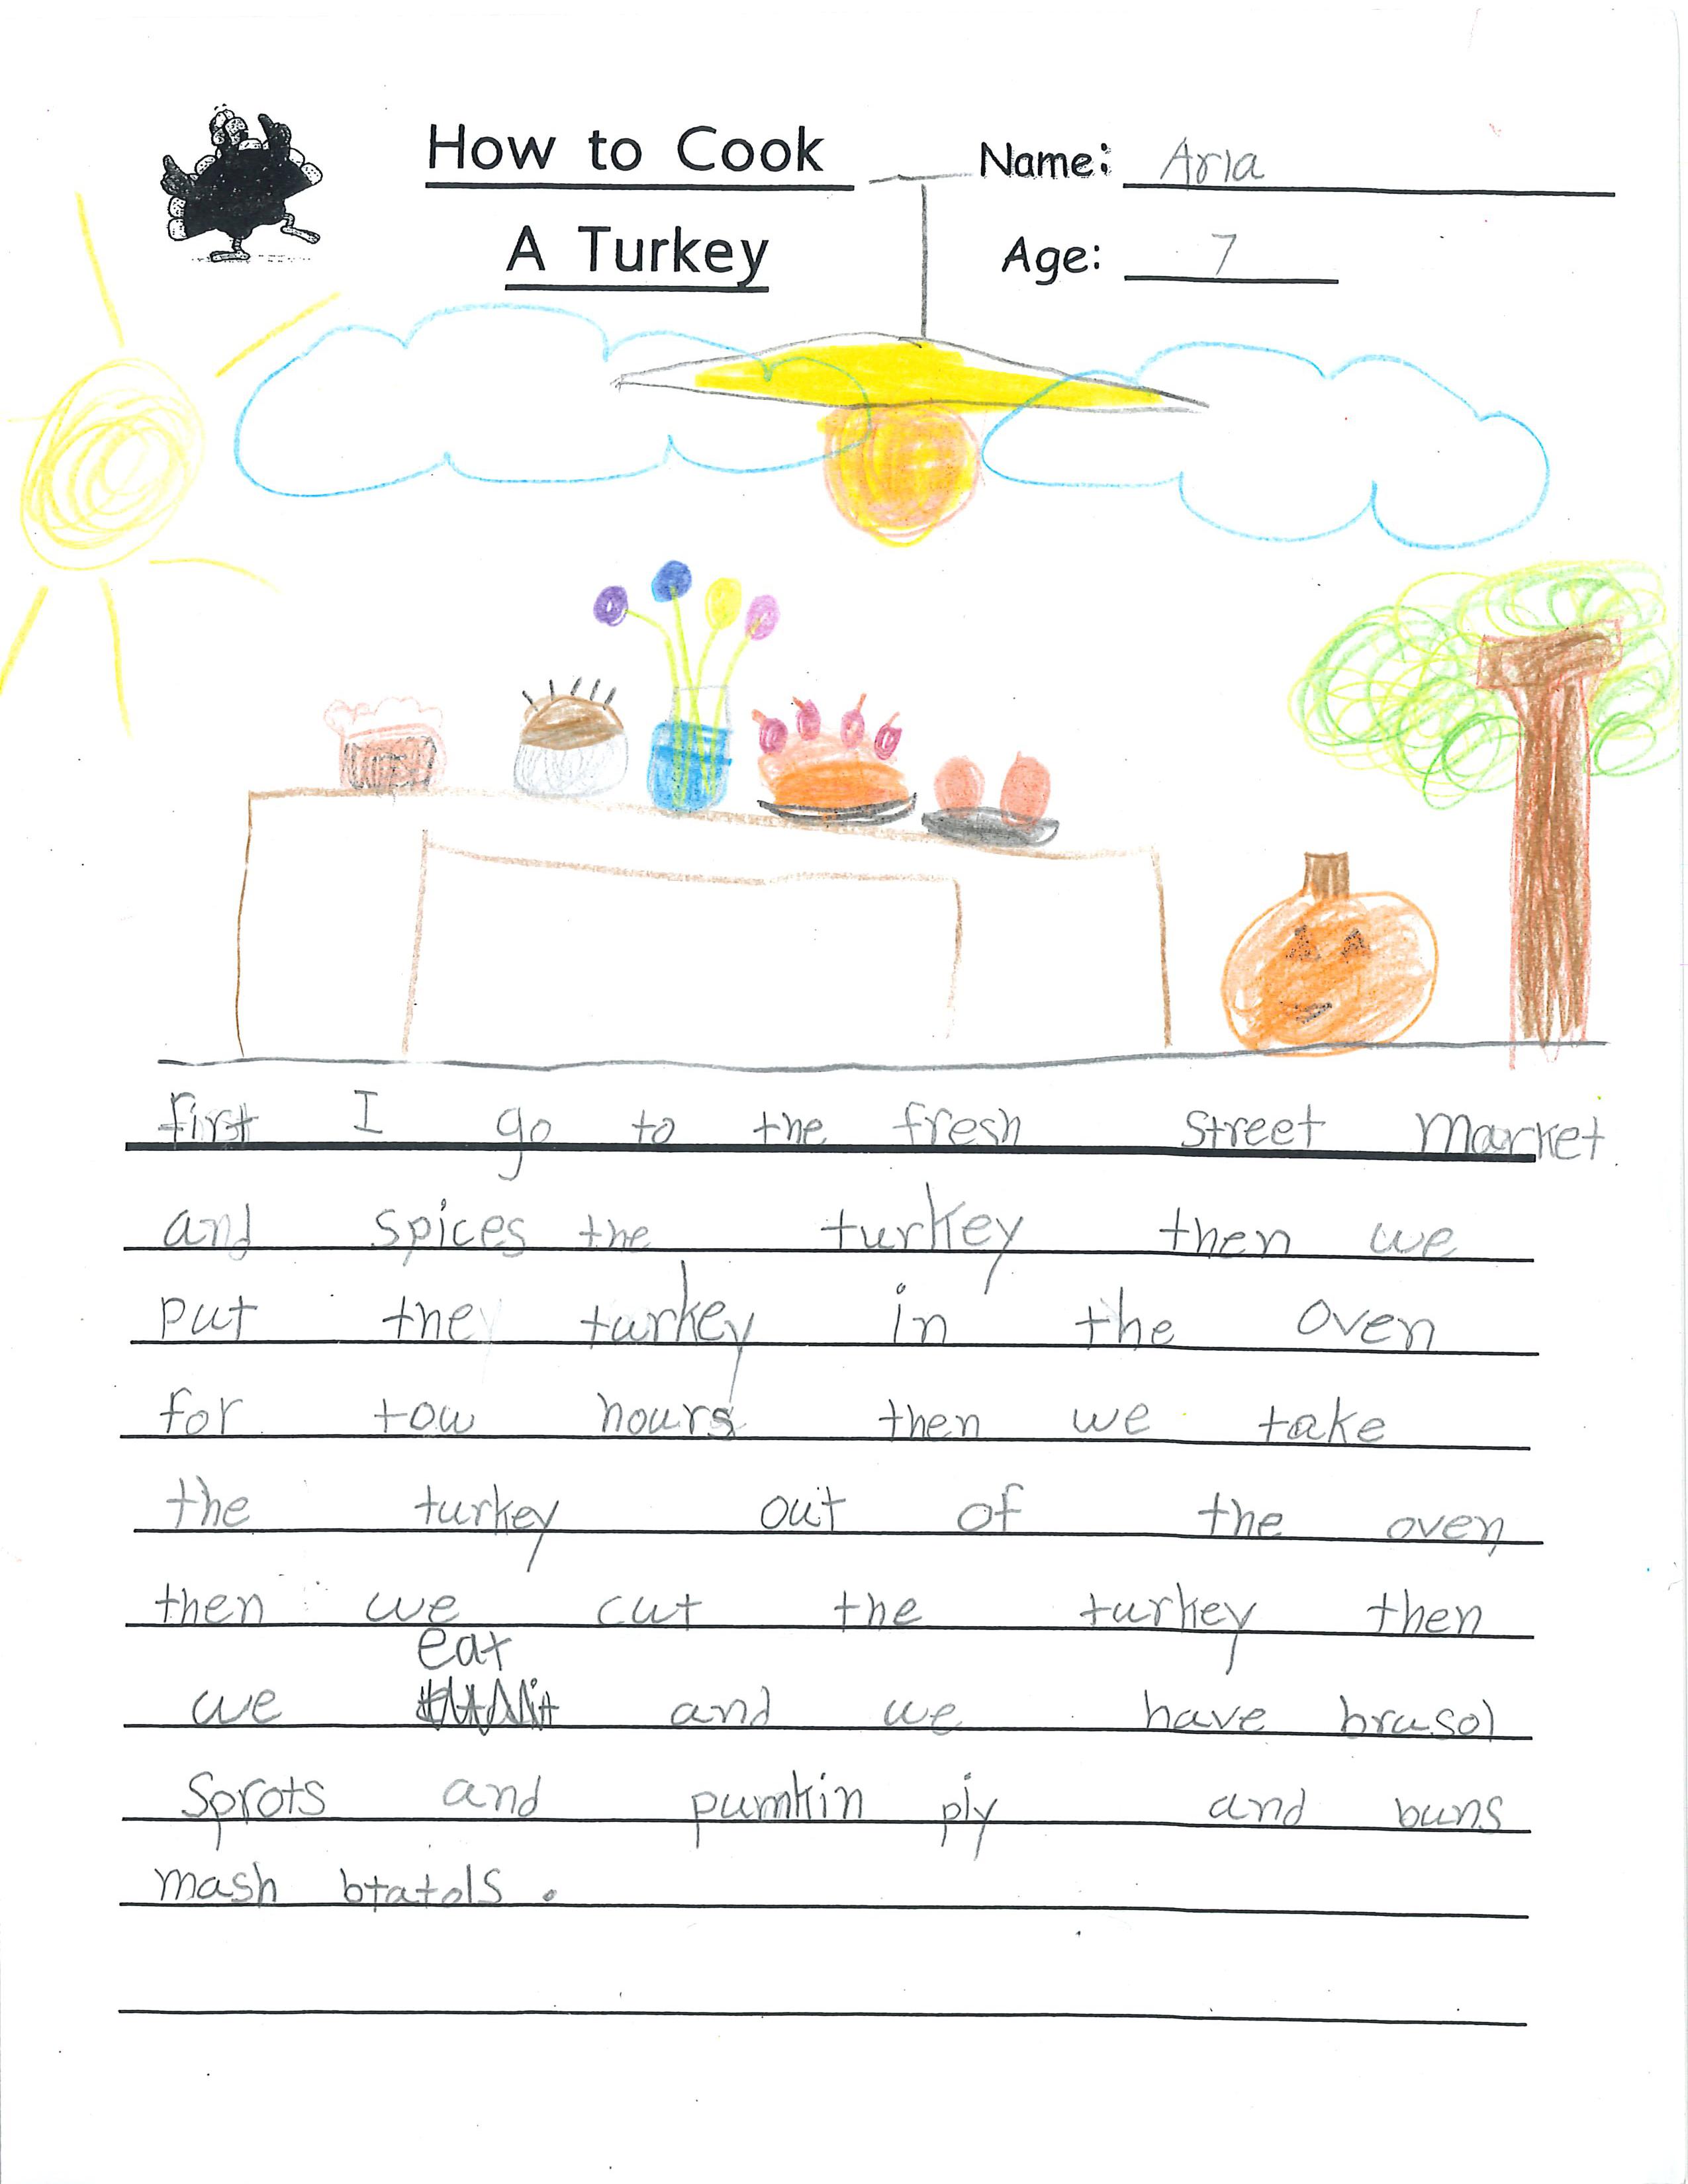 How to Cook
A Turkey
Name: Aria
Age: 7
first I go to the fresh street market
and spices the turkey then we
put the turkey in the oven
for tow hours then we take
the turkey out of the oven
then we cut the turkey then
eat
we and we have brusol
Sprots and pumkin piy and buns
mash btatols.